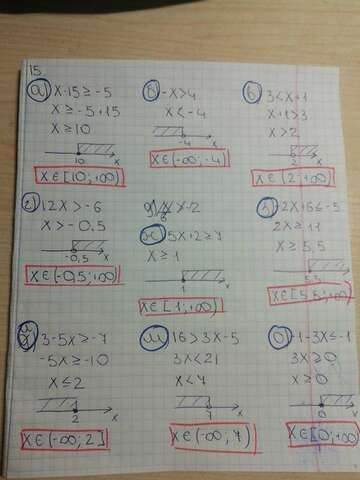 15.
а) x-15≥-5
x≥-5+15
x≥10
10 x
x∈[10;+∞)
б) -x>4
x<-4
-4 x
x∈(-∞;-4)
в) 3<x+1
x+1>3
x>2
2 x
x∈(2;+∞)
г) 12x>-6
x>-0.5
-0,5 x
x∈(-0,5;+∞)
ж) 5x+2≥7
x≥1
1 x
x∈[1;+∞)
з) -2x+6≤-5
2x≥11
x≥5,5
x∈[5,5;+∞)
3-5x≥-7
-5x≥-10
x≤2
2 x
x∈(-∞;2]
м) 16>3x-5
3x<21
x<7
7 x
x∈(-∞;7)
о) -1-3x≤-1
3x≥0
x≥0
0 x
x∈[0;+∞)